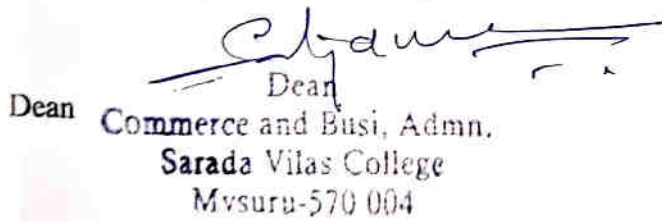 Dean
Dean
Commerce and Busi, Admn.
Sarada Vilas College
Mysuru-570 004